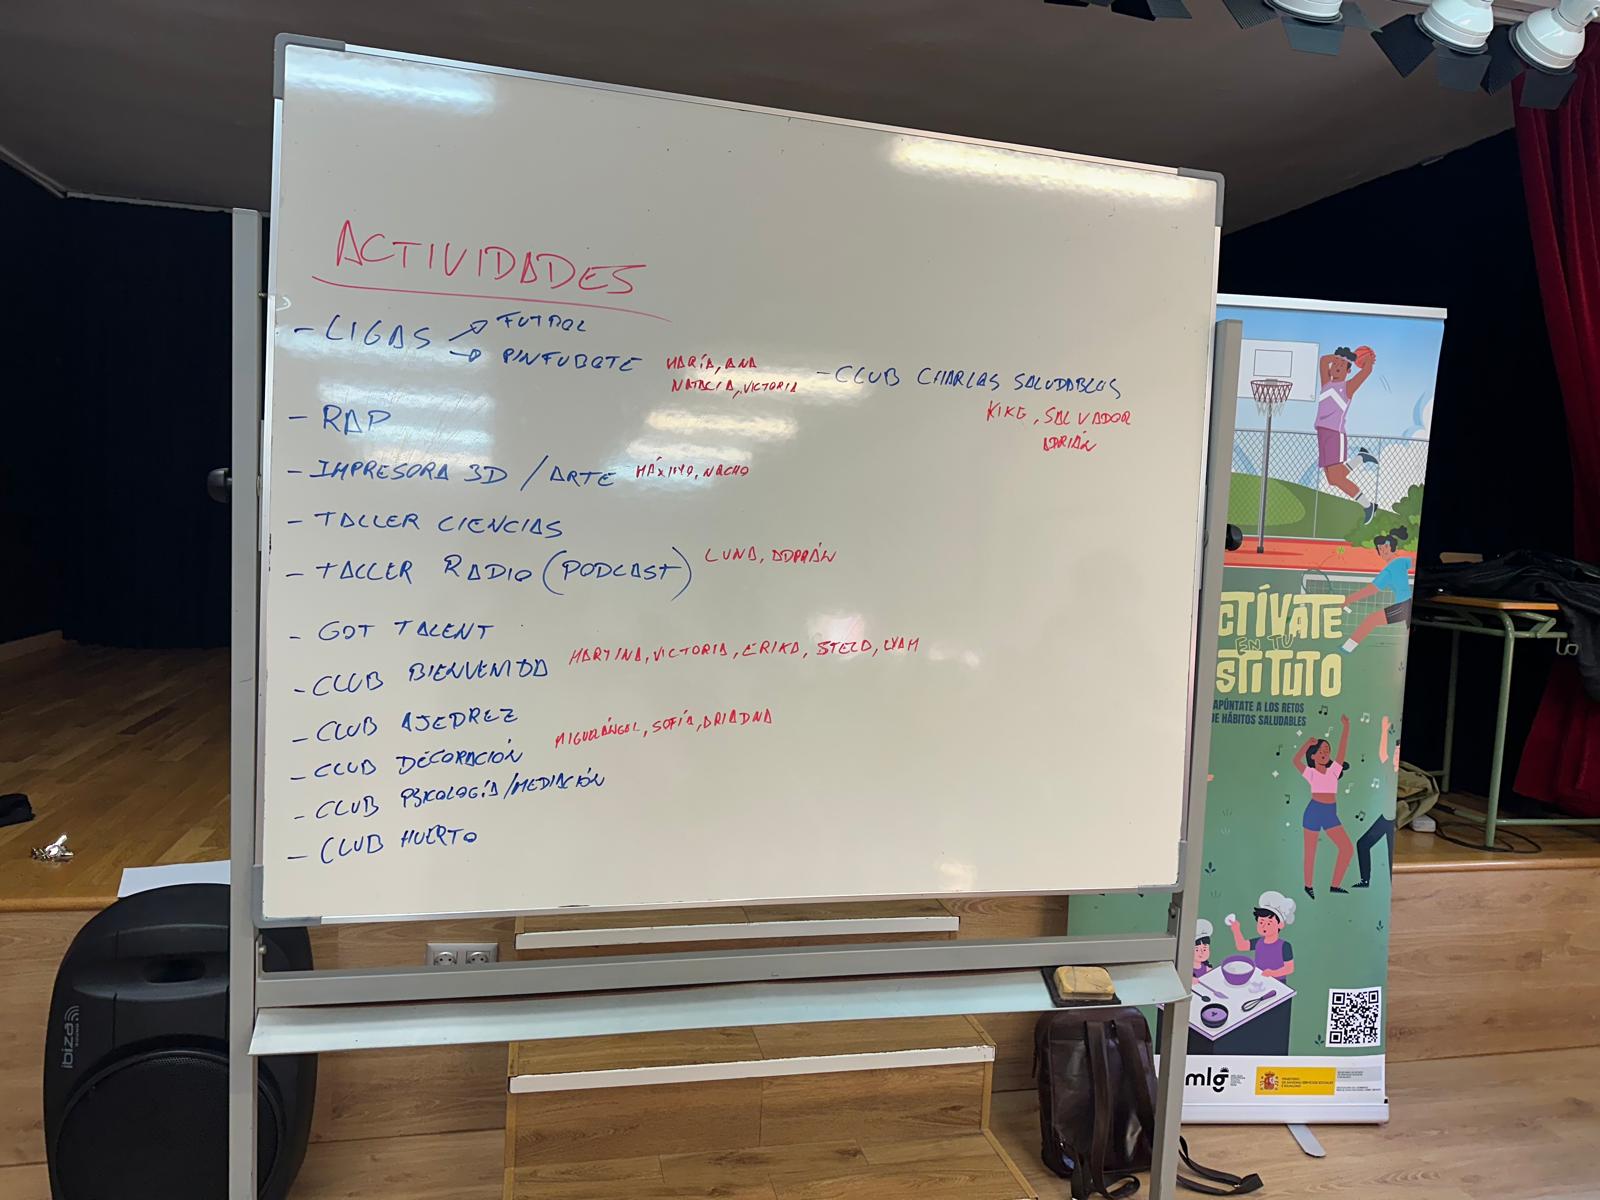 ACTIVIDADES
- LIGAS → FUTBOL
→ PINFUBOTE MARÍA, ANA
NATALIA, VICTORIA
- RAP
- IMPRESORA 3D / ARTE MÁXIMO, NACHO
- TALLER CIENCIAS
- TALLER RADIO (PODCAST) LUNA, ADRIÁN
- GOT TALENT
- CLUB BIENVENIDA MARTINA, VICTORIA, ERIKA, STELA, LYAM
- CLUB AJEDREZ
- CLUB DECORACIÓN MIGUEL ÁNGEL, SOFÍA, ARIADNA
- CLUB PSICOLOGÍA/MEDIACIÓN
- CLUB HUERTO
- CLUB CHARLAS SALUDABLES
KIKE, SALVADOR
ADRIÁN
CTÍVATE
EN TU
STITUTO
APÚNTATE A LOS RETOS
DE HÁBITOS SALUDABLES
mlg
ibiza